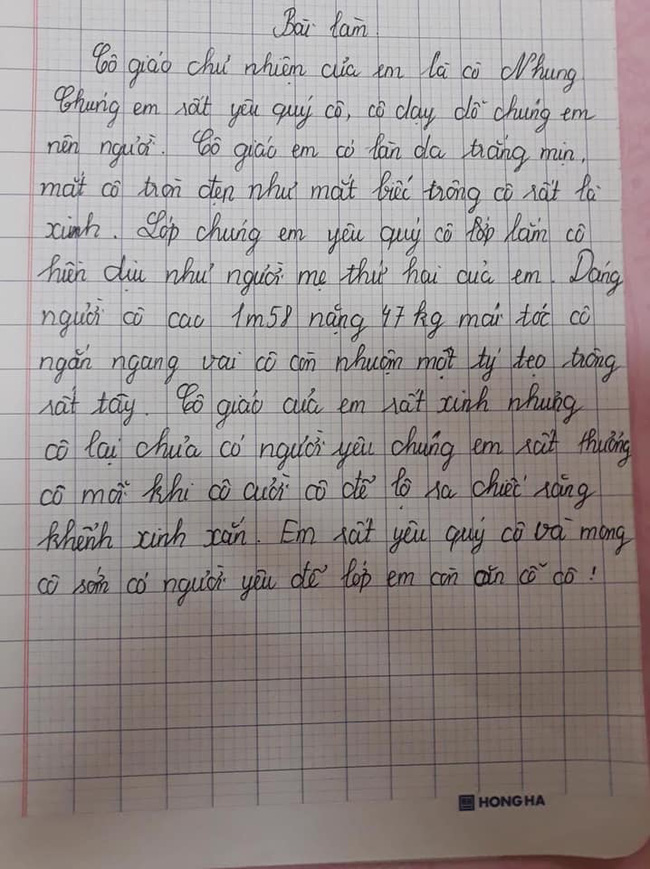 Bài làm
Cô giáo chư nhiệm của em là cô Nhung
Chúng em rất yêu quý cô, cô dạy dỗ chúng em
nên người. Cô giáo em có làn da trắng mịn,
mắt cô tròn đẹp như mắt biếc trông cô rất là
xinh. Lớp chúng em yêu quý cô lắm cô
hiền dịu như người mẹ thứ hai của em. Dáng
người cô cao 1m58 nặng 47 kg mái tóc cô
ngắn ngang vai cô còn nhuộm một tý tẹo trông
rất tây. Cô giáo của em rất xinh nhưng
cô lại chưa có người yêu chúng em rất thương
cô mỗi khi cô cười cô để lộ ra chiếc răng
khểnh xinh xắn. Em rất yêu quý cô và mong
cô sớm có người yêu để lớp em còn ăn cỗ cô!
HONG HA